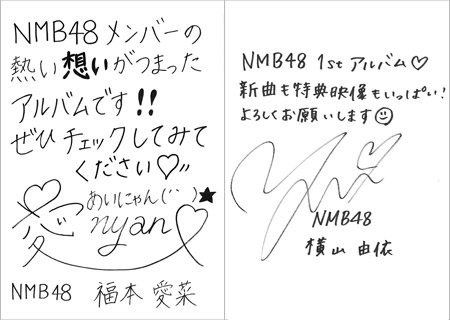 NMB48 メンバーの
熱い想いがつまった
アルバムです!!
ぜひ チェックしてみて
ください♡〃
あいにゃん(˙ ˙)★
愛nyan♡
NMB48 福本 愛菜
NMB48 1st アルバム♡
新曲も特典映像もいっぱい!
よろしくお願いします☺
NMB48
横山 由依